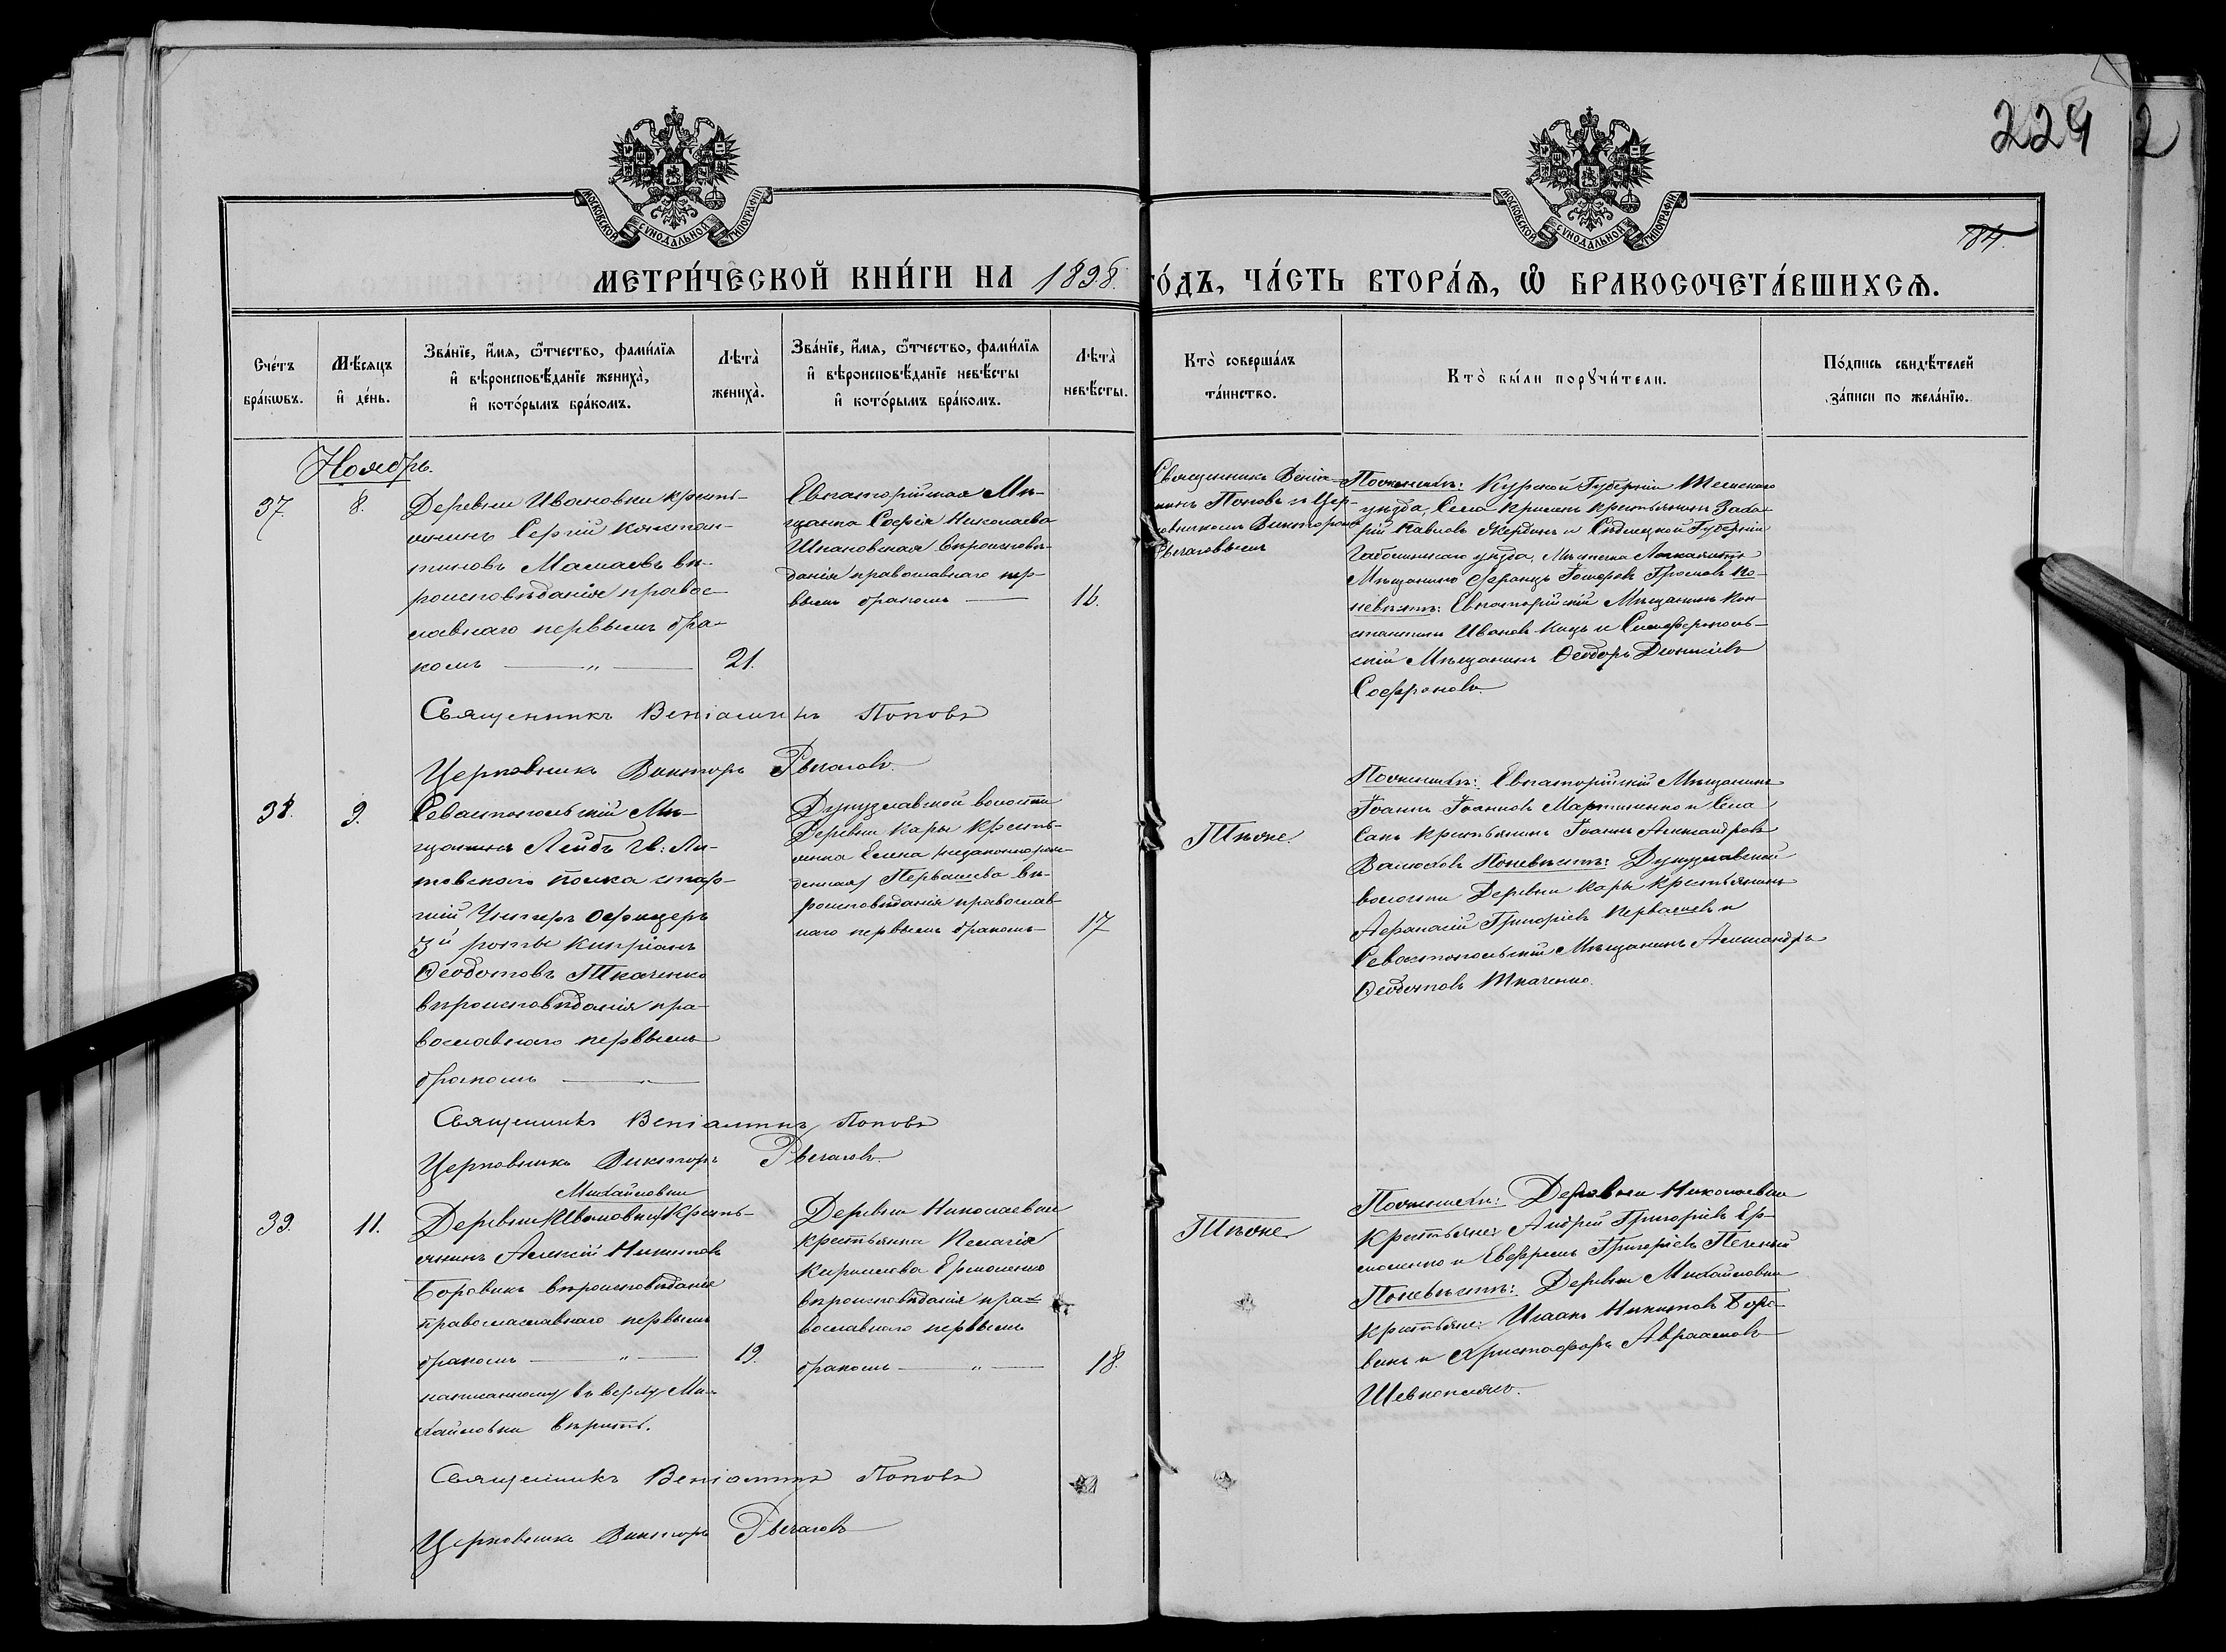 224
2
184.
МОСКОВСКОЙ СУНОДАЛЬНОЙ ТИПОГРАФІИ
МОСКОВСКОЙ СУНОДАЛЬНОЙ ТИПОГРАФІИ
МЕТРИ́ЧЕСКОЙ КНИ́ГИ НА 1898. ГО́ДЪ, ЧА́СТЬ ВТОРА́Я, Ѡ҆ БРАКОСОЧЕТА́ВШИХСѦ.
Сче́тъ бра́кѡвъ.
Мѣ́сяцъ и҆ де́нь.
Зва́нїе, и҆́мѧ, ѻ҆́тчество, фами́лїѧ
и҆ вѣроисповѣ́данїе жениха̀,
и҆ кото́рымъ бра́комъ.
Лѣта̀ жениха̀.
Зва́нїе, и҆́мѧ, ѻ҆́тчество, фами́лїѧ
и҆ вѣроисповѣ́данїе невѣ́сты
и҆ кото́рымъ бра́комъ.
Лѣта̀ невѣ́сты.
Кто̀ соверша́лъ та́инство.
Кто̀ бы́ли порꙋчи́тели.
По́дпись свидѣ́телей за́писи по жела́нїю.
Ноябрь.
37. 8.
Деревни Ивановки кресть-
янинъ Сергій Констан-
тиновъ Мамаевъ вѣ-
роисповѣданія правос-
лавнаго первымъ бра-
комъ — „ — 21.
Евпаторійская Мѣ-
щанка Софія Николаева
Шпаковская вѣроисповѣ-
данія православнаго пер-
вымъ бракомъ — 16.
Священникъ Веніа-
минъ Поповъ и Цер-
овникомъ Викторомъ
Рычаговымъ
По женихѣ: Курской Губерніи Тимскаго
уѣзда, Села крестьянинъ Заха-
рій Павловъ и Сѣдлецкой Губерніи
уѣзда, Мѣстечка
Мѣщанинъ Францъ Громовъ По
невѣстѣ: Евпаторійскій Мѣщанинъ Кон-
стантинъ Ивановъ и Симферополь-
скій Мѣщанинъ Ѳеодоръ Діонисіевъ
Софроновъ.
Священникъ Веніаминъ Поповъ
Церковникъ Викторъ Рычаговъ.
38. 9.
Севастопольскій Мѣ-
щанинъ Лейбъ Гв: Ли-
товскаго полка стар-
шій Унтеръ Офицеръ
3й роты Кипріанъ
Ѳеодотовъ Ткаченко
вѣроисповѣданія пра-
вославнаго первымъ
бракомъ —
Дунузлавской волости
Деревни Кары кресть-
янка Елена (незаконнорож-
денная) Первашева вѣ-
роисповѣданія православ-
наго первымъ бракомъ 17
Тѣже.
По женихѣ: Евпаторійскій Мѣщанинъ
Іоаннъ Іоанновъ Мартыненко и Села
Сакъ крестьянинъ Іоаннъ Александровъ
По невѣстѣ: Дунузлавской
волости Деревни Кары крестьянинъ
Афанасій Григоріевъ Первашевъ и
Севастопольскій Мѣщанинъ Александръ
Ѳеодотовъ Ткаченко.
Священникъ Веніаминъ Поповъ
Церковникъ Викторъ Рычаговъ.
39. 11.
Михайловки
Деревни (Ивановки) кресть-
янинъ Алексій Никитовъ
Боровикъ вѣроисповѣданія
православнаго первымъ
бракомъ — „ — 19.
написанному въ верху Ми-
хайловки вѣрить.
Деревни Николаевки
крестьянка Пелагія
Кирилова Ермоленко
вѣроисповѣданія пра-
вославнаго первымъ
бракомъ — „ — 18.
Тѣже
По женихѣ: Деревни Николаевки
Крестьяне: Андрей Григоріевъ Ер-
моленко и Евфремъ Григоріевъ
По невѣстѣ: Деревни Михайловки
крестьяне: Исаакъ Никитовъ Боро-
викъ и Христофоръ Авраамовъ
Священникъ Веніаминъ Поповъ
Церковникъ Викторъ Рычаговъ